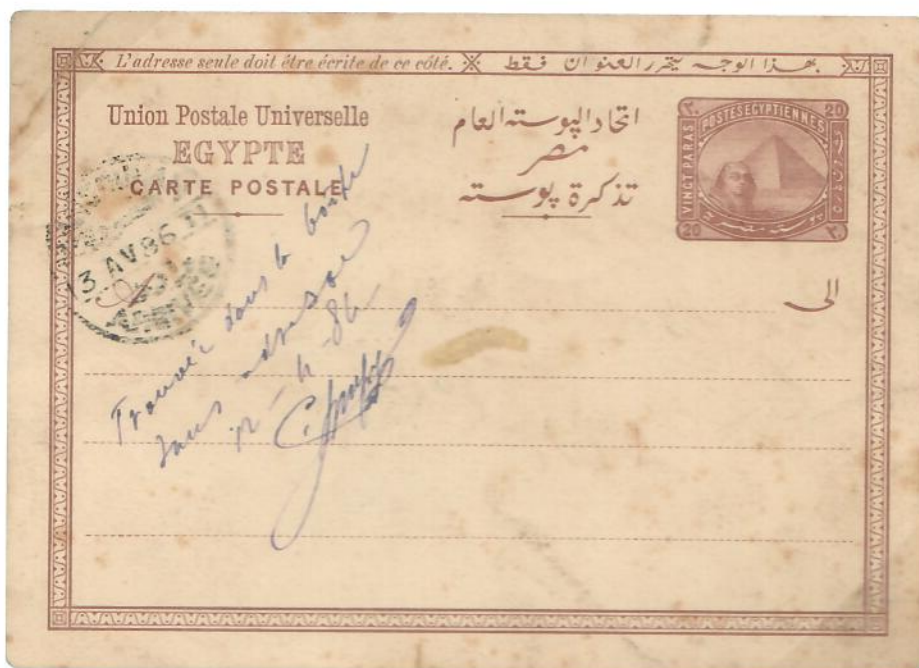 L'adresse seule doit être écrite de ce côté.
بهذا الوجه يتحرر العنوان فقط
Union Postale Universelle
EGYPTE
CARTE POSTALE
اتحاد البوسته العام
مصر
تذكرة بوسته
20
٢٠
POSTES EGYPTIENNES
VINGT PARAS
20
٢٠
3 AV 86
الى
Trouvée dans la boite
sans